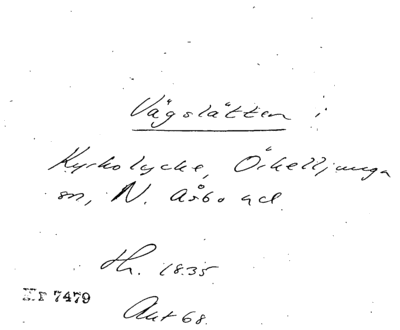 Vägslätten i
Kyrkolycke, Örkelljunga
sn, N. Åsbo hd.
Th. 1835
Nr 7479
Akt 68.